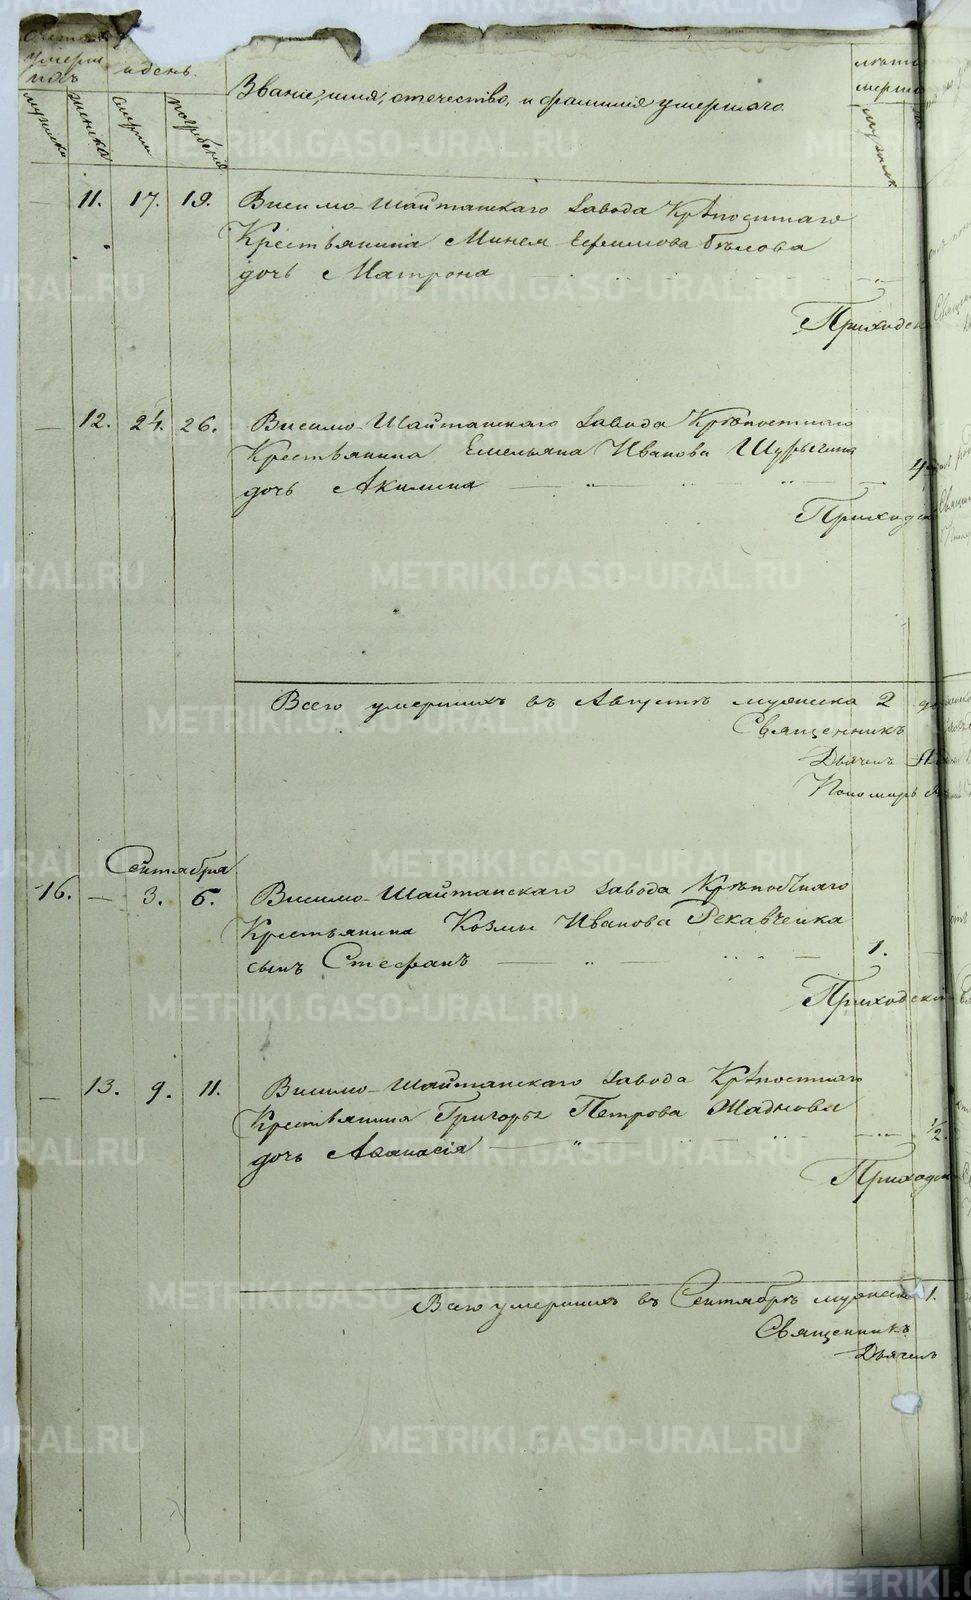 Счетъ умерш
ихъ
и день.
Званіе, имя, отечество, и фамилія умершаго.
лѣта
мерша
мужска
женска
смерти
погребенія
11. 17. 19. Висимо-Шайтанскаго завода Крѣпостнаго
Крестьянина Минея Ефимова Бѣлова
дочь Матрона
Приходск
12. 24. 26. Висимо-Шайтанскаго завода Крѣпостнаго
Крестьянина Емельяна Иванова Шурыгина
дочь Акилина 4
Приходск
Всего умершихъ въ Августѣ мужска 2
Священникъ
Дьячекъ
Пономарь
Сентября
16. — 3. 6. Висимо-Шайтанскаго завода Крѣпостнаго
Крестьянина Козмы Иванова Рекавчейка
сынъ Стефанъ 1.
Приходскій
— 13. 9. 11. Висимо-Шайтанскаго завода Крѣпостнаго
Крестьянина Григорья Петрова Жаднова
дочь Аѳанасія 1/2.
Приходск
Всего умершихъ въ Сентябрѣ мужска 1.
Священникъ
Дьячекъ
METRIKI.GASO-URAL.RU